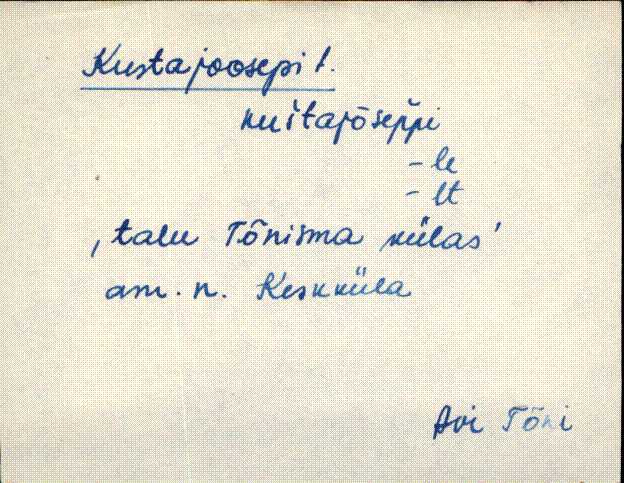 Kustajoosepi t.
kuśtajōsep̆pi
-le
-lt
‚talu Tõnisma külas’
am. n. Keskküla
Avi Tõni